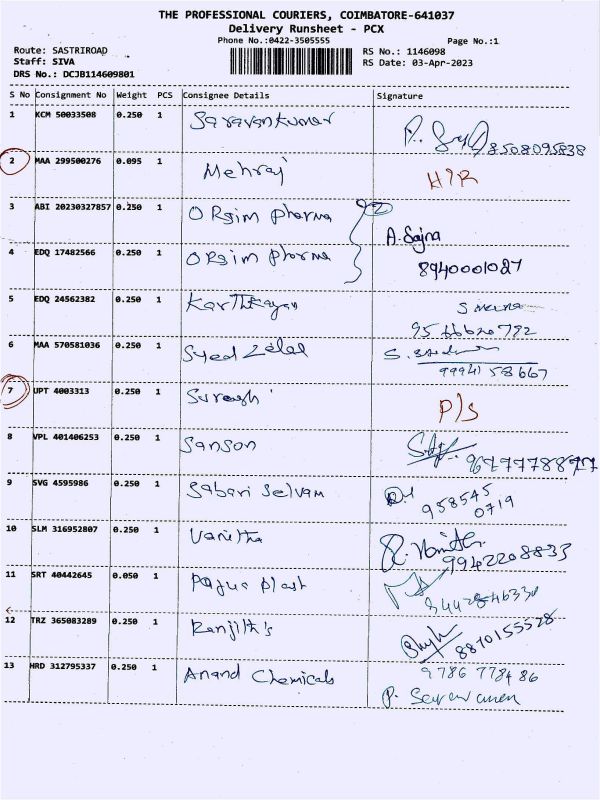 THE PROFESSIONAL COURIERS, COIMBATORE-641037
Delivery Runsheet - PCX
Phone No.:0422-3505555
Page No.:1
Route: SASTRIROAD
Staff: SIVA
DRS No.: DCJB114609801
RS No.: 1146098
RS Date: 03-Apr-2023
S No Consignment No Weight PCS Consignee Details Signature
1 KCM 50033508 0.250 1 Saravankumar 8508095838
2 MAA 299500276 0.095 1 Mehraj
3 ABI 20230327857 0.250 1 ORgim pharma A. Sajna
4 EDQ 17482566 0.250 1 ORgim pharma 8940001087
5 EDQ 24562382 0.250 1 Karthikayan
6 MAA 570581036 0.250 1 Syed 99941 58667
7 UPT 4003313 0.250 1 Suresh P/S
8 VPL 401406253 0.250 1 Sanson
9 SVG 4595986 0.250 1 Sabari Selvam 958545 0719
10 SLM 316952807 0.250 1 Vanitha 9942208833
11 SRT 40442645 0.050 1
12 TRZ 365083289 0.250 1 Ranjith's 8870155528
13 HRD 312795337 0.250 1 Anand Chemicals 9786 778486
P. Saravanan